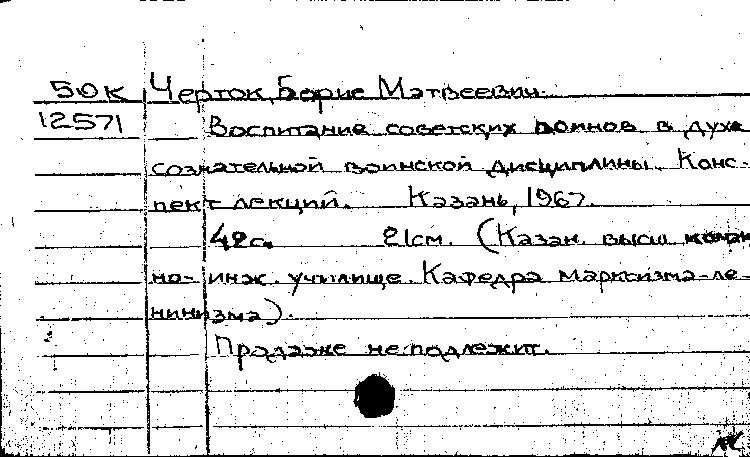 50К Черток, Борис Матвеевич.
12571 Воспитание советских воинов в духе
сознательной воинской дисциплины. Конс-
пект лекций. Казань, 1967.
42с. 21см. (Казан. высш. команд
но-инж. училище. Кафедра марксизма-ле-
нинизма).
Продаже не подлежит.